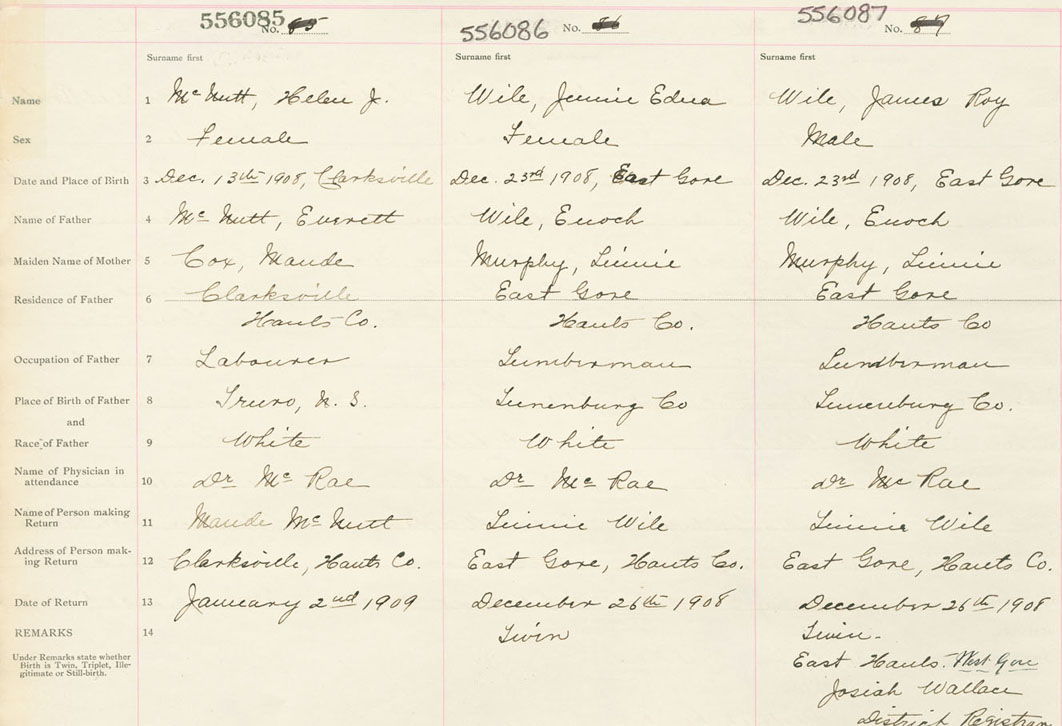 556085 No. 85
556086 No. 86
556087 No. 87
Surname first Surname first Surname first
Name 1 McNutt, Helen J. Wile, Jennie Edna Wile, James Roy
Sex 2 Female Female Male
Date and Place of Birth 3 Dec. 13th 1908, Clarksville Dec. 23rd 1908, East Gore Dec. 23rd 1908, East Gore
Name of Father 4 McNutt, Everett Wile, Enoch Wile, Enoch
Maiden Name of Mother 5 Cox, Maude Murphy, Linnie Murphy, Linnie
Residence of Father 6 Clarksville East Gore East Gore
Hants Co. Hants Co. Hants Co
Occupation of Father 7 Labourer Lumberman Lumberman
Place of Birth of Father 8 Truro, N. S. Lunenburg Co Lunenburg Co.
and
Race of Father 9 White White White
Name of Physician in
attendance 10 Dr McRae Dr McRae Dr McRae
Name of Person making
Return 11 Maude McNutt Linnie Wile Linnie Wile
Address of Person mak-
ing Return 12 Clarksville, Hants Co. East Gore, Hants Co. East Gore, Hants Co.
Date of Return 13 January 2nd 1909 December 26th 1908 December 26th 1908
REMARKS 14 Twin Twin.
Under Remarks state whether
Birth is Twin, Triplet, Ille-
gitimate or Still-birth.
East Hants. West Gore
Josiah Wallace
District Registrar